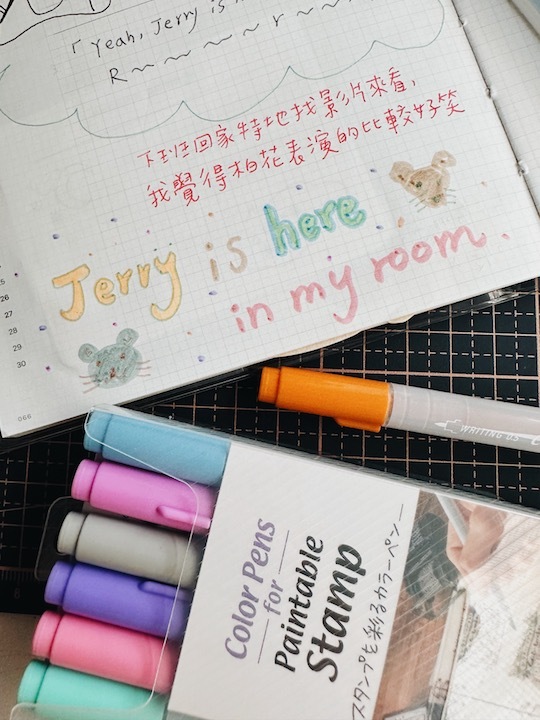 「Yeah, Jerry is
R~~~~r~~
下班回家特地找影片來看，
我覺得柏花表演的比較好笑
Jerry is here
in my room.
25
26
27
28
29
30
066
WRITING 0.5
Color Pens
for
Paintable
Stamp
スタンプを彩るカラーペン